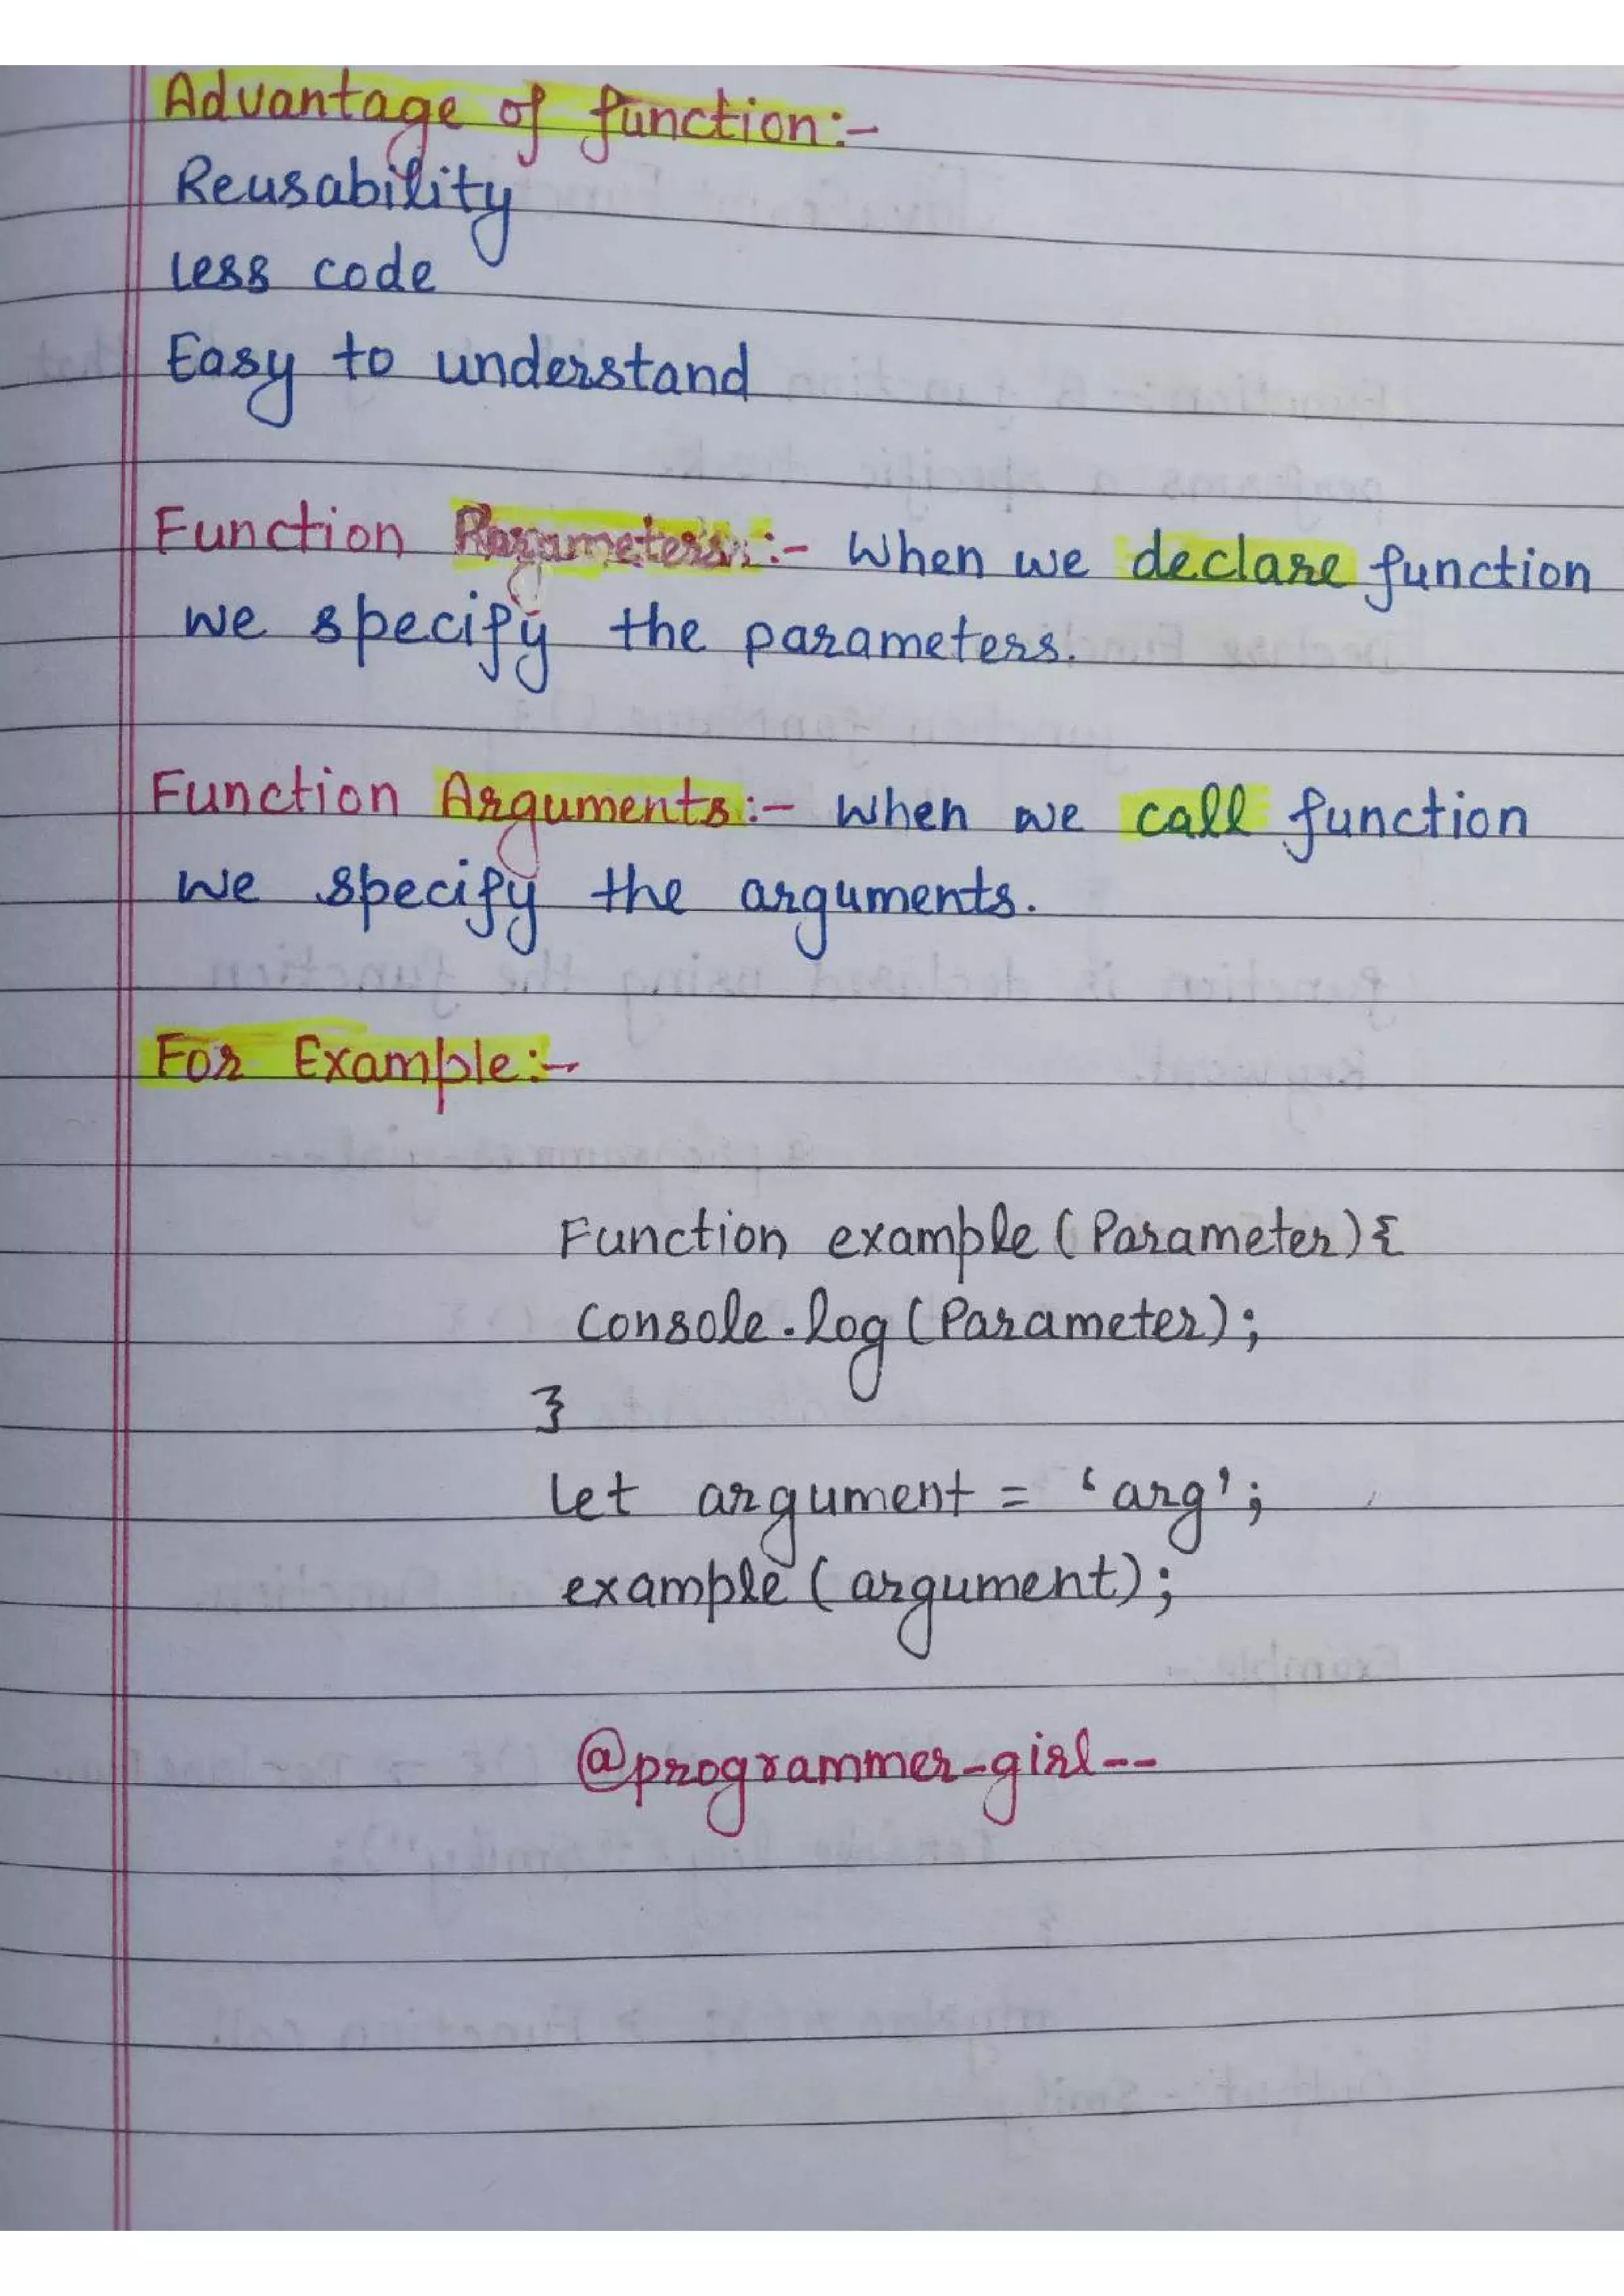 Advantage of function:-
Reusability
Less code
Easy to understand
Function Parameters:- When we declare function
we specify the parameters.
Function Arguments:- When we call function
we specify the arguments.
For Example:-
Function example (Parameter) {
Console.log (Parameter);
}
Let argument = 'arg';
example (argument);
@programmer-girl--